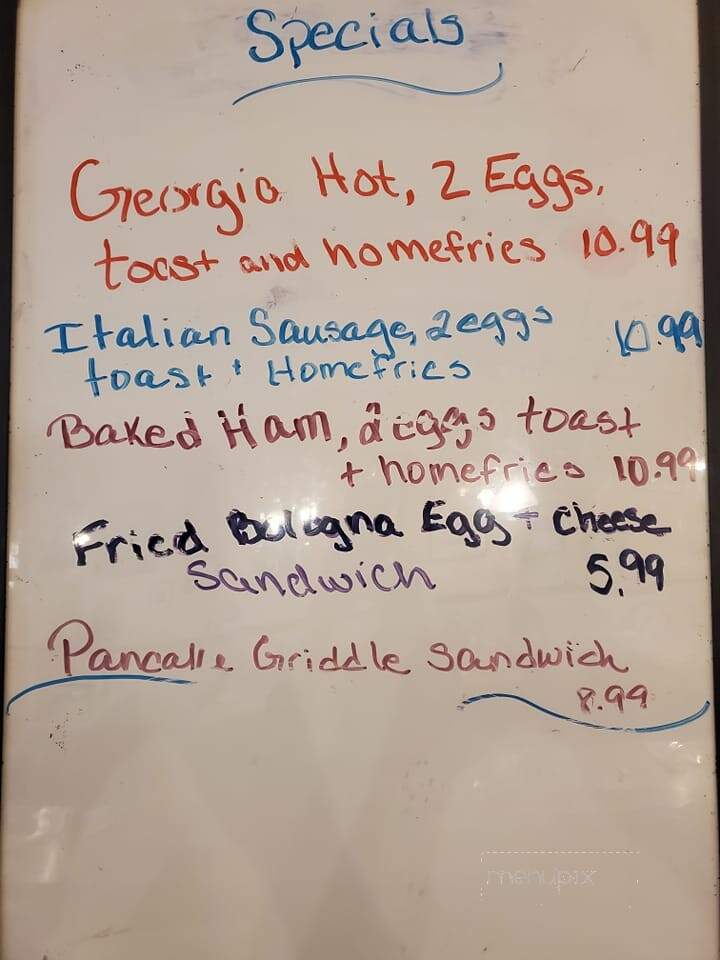 Specials
Georgia Hot, 2 Eggs,
toast and homefries 10.99
Italian Sausage, 2 eggs 10.99
toast + Homefries
Baked Ham, 2 eggs toast
+ homefries 10.99
Fried Bologna Egg + Cheese
Sandwich 5.99
Pancake Griddle Sandwich
8.99
menupix